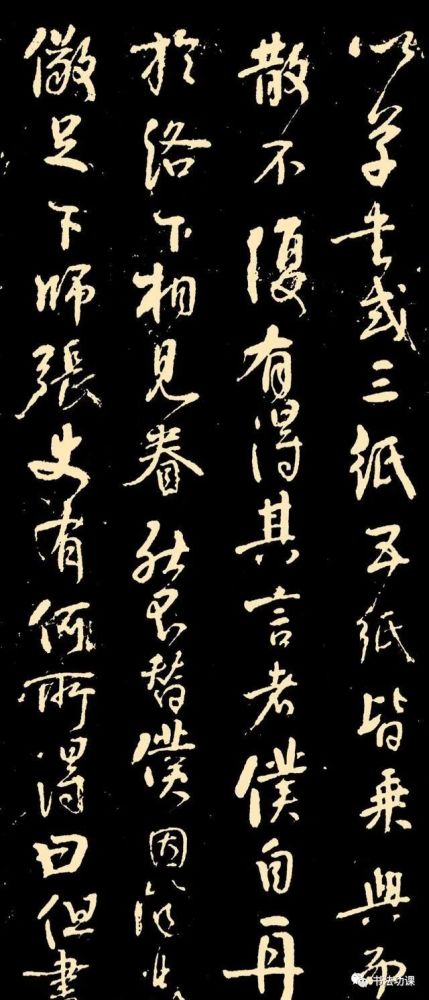 以草書或三紙五紙皆乘興而
散不復有得其言者僕自再
於洛下相見眷然不替僕因
儆足下師張史有何所得曰但書
书法功课